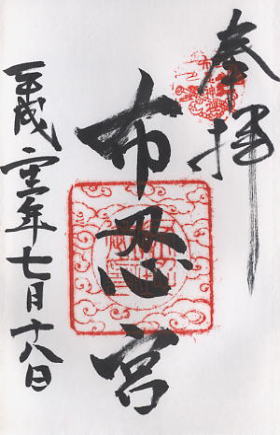 奉拝
布忍宮
平成二十三年七月十八日